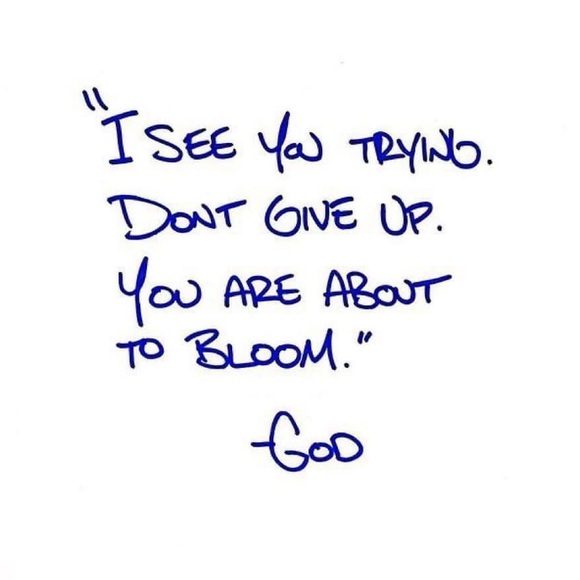 "I SEE YOU TRYING.
DONT GIVE UP.
YOU ARE ABOUT
TO BLOOM."
-GOD